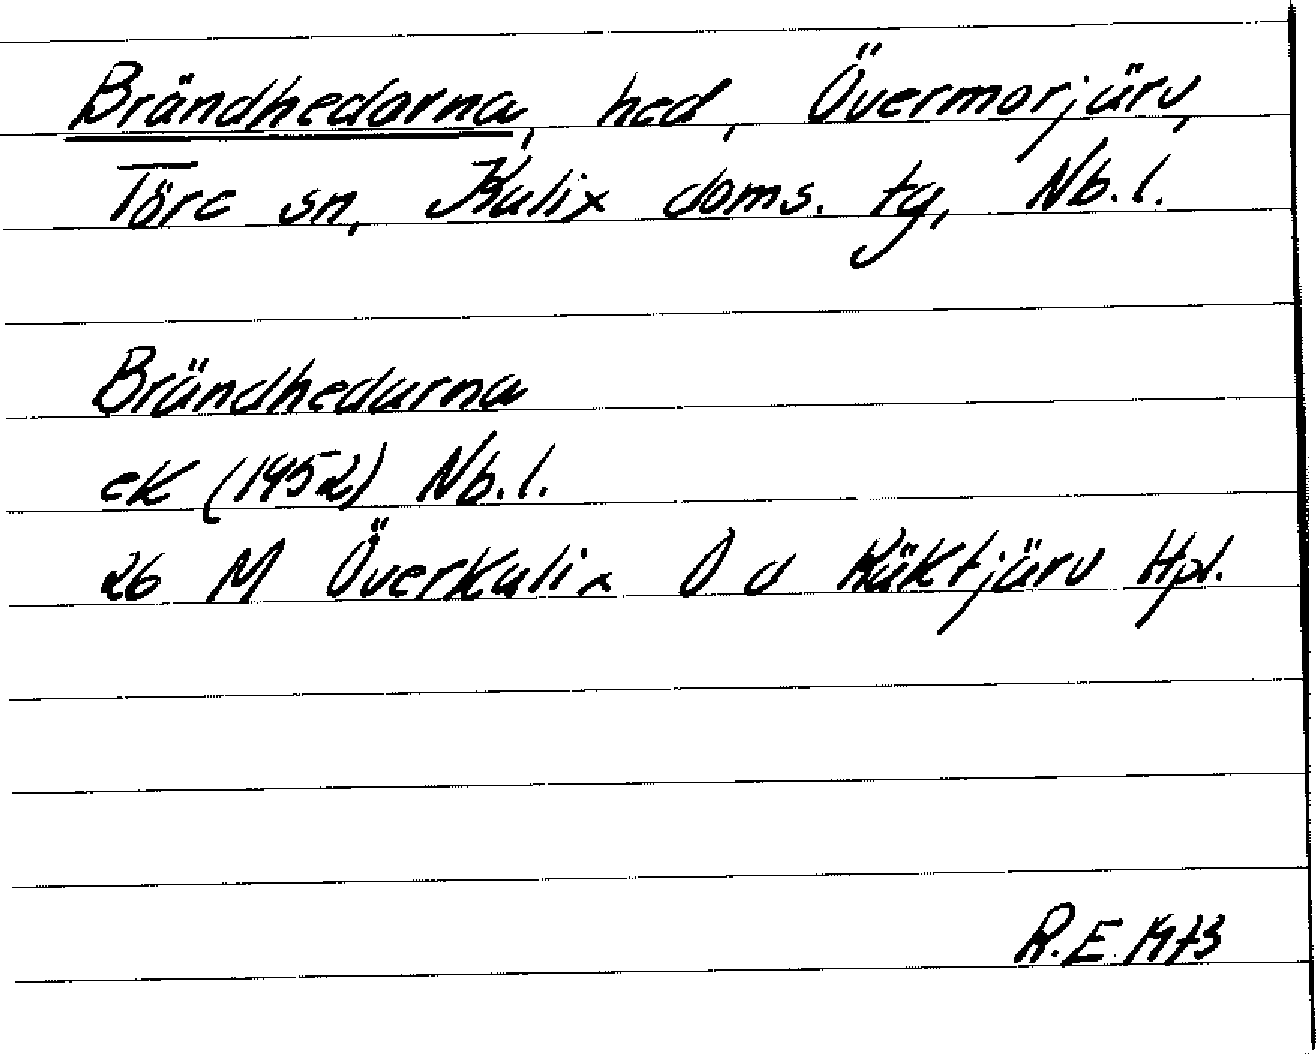 Brändhedarna, hed, Övermorjärv,
Töre sn, Kalix doms. tg, Nb.l.
Brändhedarna
ek (1952) Nb.l.
26 M Överkalix O d Räktjärv Hpl.
R.E. 1973